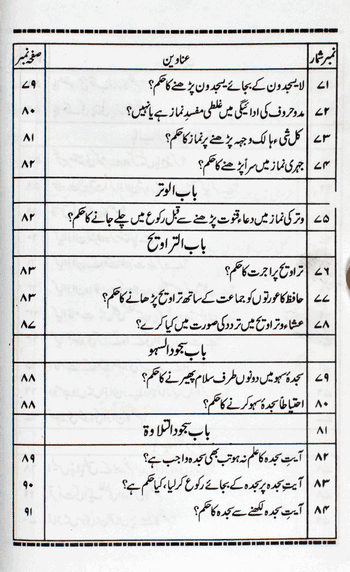 نمبر شمار عناوین صفحہ نمبر
۷۱ لا یسجدون کے بجائے یسجدون پڑھنے کا حکم؟ ۷۹
۷۲ مدو حروف کی ادائیگی میں غلطی مفسد نماز ہے یا نہیں؟ ۸۰
۷۳ کل شیء ہالک و جہہ پڑھنے پر نماز کا حکم؟ ۸۱
۷۴ جہری نماز میں سراً پڑھنے کا حکم؟ ۸۲
باب الوتر
۷۵ وتر کی نماز میں دعاء قنوت پڑھنے سے قبل رکوع میں چلے جانے کا حکم؟ ۸۲
باب التراویح
۷۶ تراویح پر اجرت کا حکم؟ ۸۳
۷۷ حافظ کا عورتوں کو جماعت کے ساتھ تراویح پڑھانے کا حکم؟ ۸۳
۷۸ عشاء و تراویح میں تردد کی صورت میں کیا کرے؟ ۸۷
باب سجود السہو
۷۹ سجدۂ سہو میں دونوں طرف سلام پھیرنے کا حکم؟ ۸۸
۸۰ احتیاطاً سجدۂ سہو کرنے کا حکم؟ ۸۸
۸۱ باب سجود التلاوۃ
۸۲ آیت سجدہ کا علم نہ ہو تب بھی سجدہ واجب ہے؟ ۸۹
۸۳ آیت سجدہ پر سجدہ کے بجائے رکوع کر لیا، کیا حکم ہے؟ ۹۰
۸۴ آیت سجدہ لکھنے سے سجدہ کا حکم؟ ۹۱